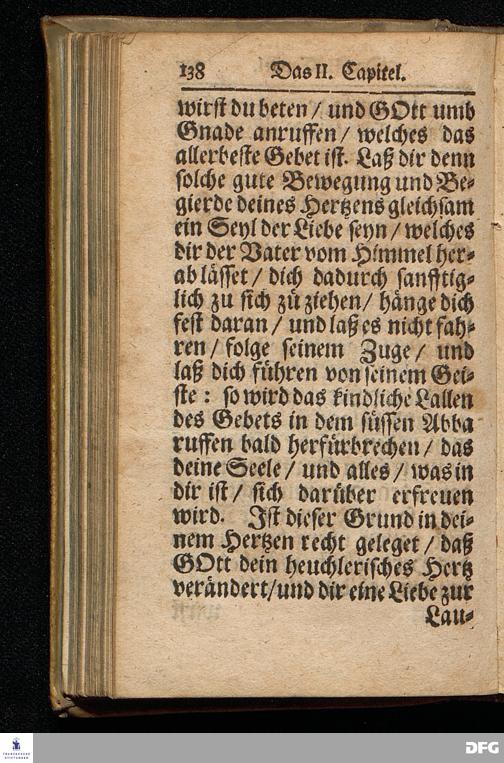 138 Das II. Capitel.
wirst du beten / und GOtt umb
Gnade anruffen / welches das
allerbeste Gebet ist. Laß dir denn
solche gute Bewegung und Be-
gierde deines Hertzens gleichsam
ein Seyl der Liebe seyn / welches
dir der Vater vom Himmel her-
ab lässet / dich dadurch sanfftig-
lich zu sich zů ziehen / hänge dich
fest daran / und laß es nicht fah-
ren / folge seinem Zuge / und
laß dich führen von seinem Gei-
ste : so wird das kindliche Lallen
des Gebets in dem süssen Abba
ruffen bald herfürbrechen / das
deine Seele / und alles / was in
dir ist / sich darüber erfreuen
wird. Ist dieser Grund in dei-
nem Hertzen recht geleget / daß
GOtt dein heuchlerisches Hertz
verändert / und dir eine Liebe zur
Lau-
FRANCKESCHE
STIFTUNGEN
DFG